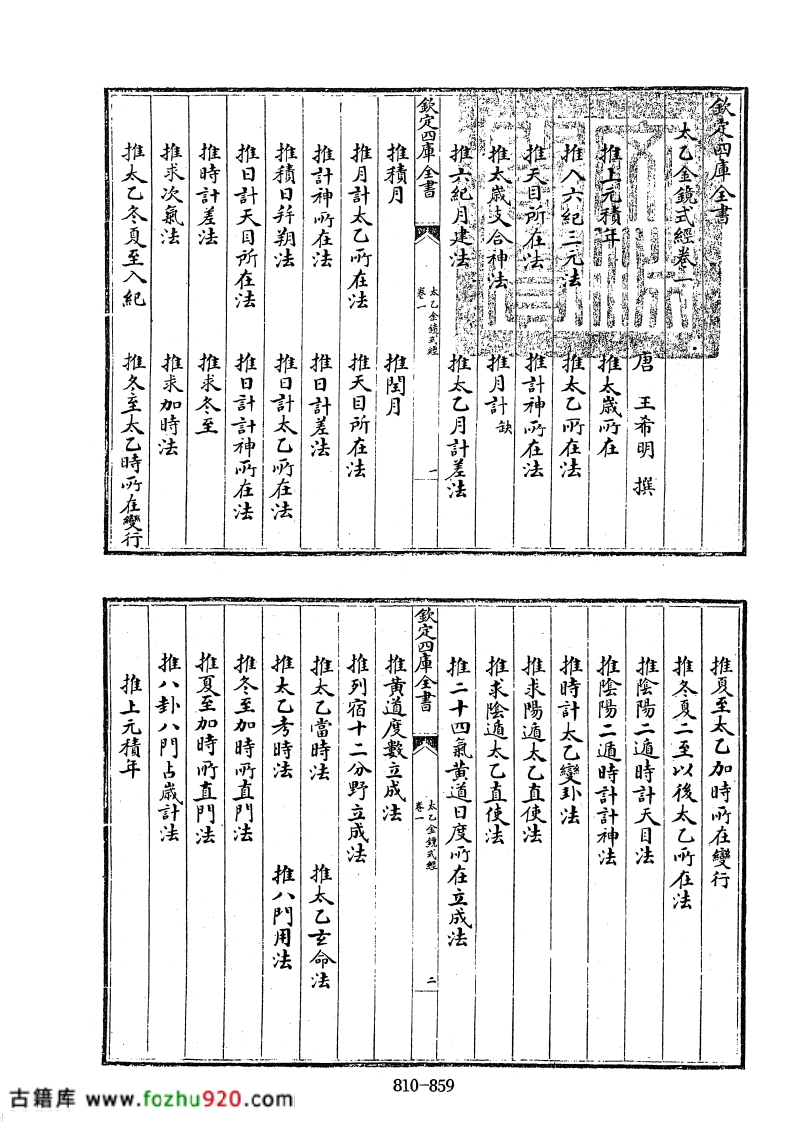 欽定四庫全書
太乙金鏡式經卷一
唐 王希明 撰
推上元積年 推太歲所在
推入六紀三元法 推太乙所在法
推天目所在法 推計神所在法
推太歲支合神法 推月計缺
推六紀月建法 推太乙月計差法
欽定四庫全書 太乙金鏡式經 卷一 一
推積月 推閏月
推月計太乙所在法 推天目所在法
推計神所在法 推日計差法
推積日幷朔法 推日計太乙所在法
推日計天目所在法 推日計計神所在法
推時計差法 推求冬至
推求次氣法 推求加時法
推太乙冬夏至入紀 推冬至太乙時所在變行
推夏至太乙加時所在變行
推冬夏二至以後太乙所在法
推陰陽二遁時計天目法
推陰陽二遁時計計神法
推時計太乙變卦法
推求陽遁太乙直使法
推求陰遁太乙直使法
推二十四氣黄道日度所在立成法
欽定四庫全書 太乙金鏡式經 卷一 二
推黄道度數立成法
推列宿十二分野立成法
推太乙當時法 推太乙玄命法
推太乙考時法 推八門用法
推冬至加時所直門法
推夏至加時所直門法
推八卦八門占歲計法
推上元積年
810-859
古籍库 www.fozhu920.com